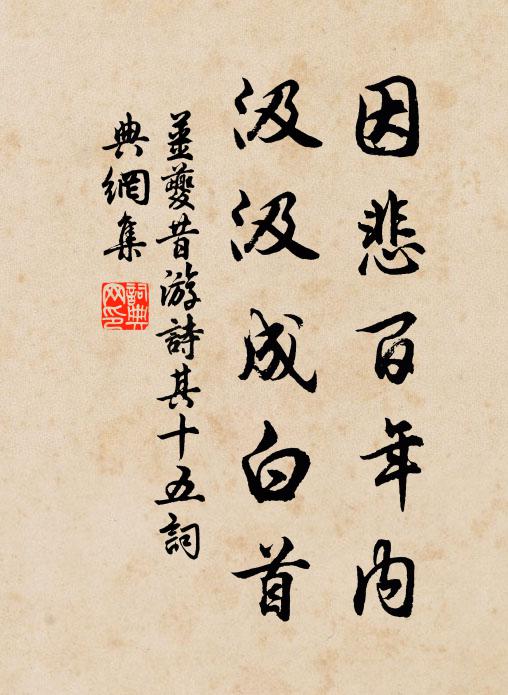 因悲百年内
汲汲成白首
姜夔昔游詩其十五詞
典網集
詞典
网印